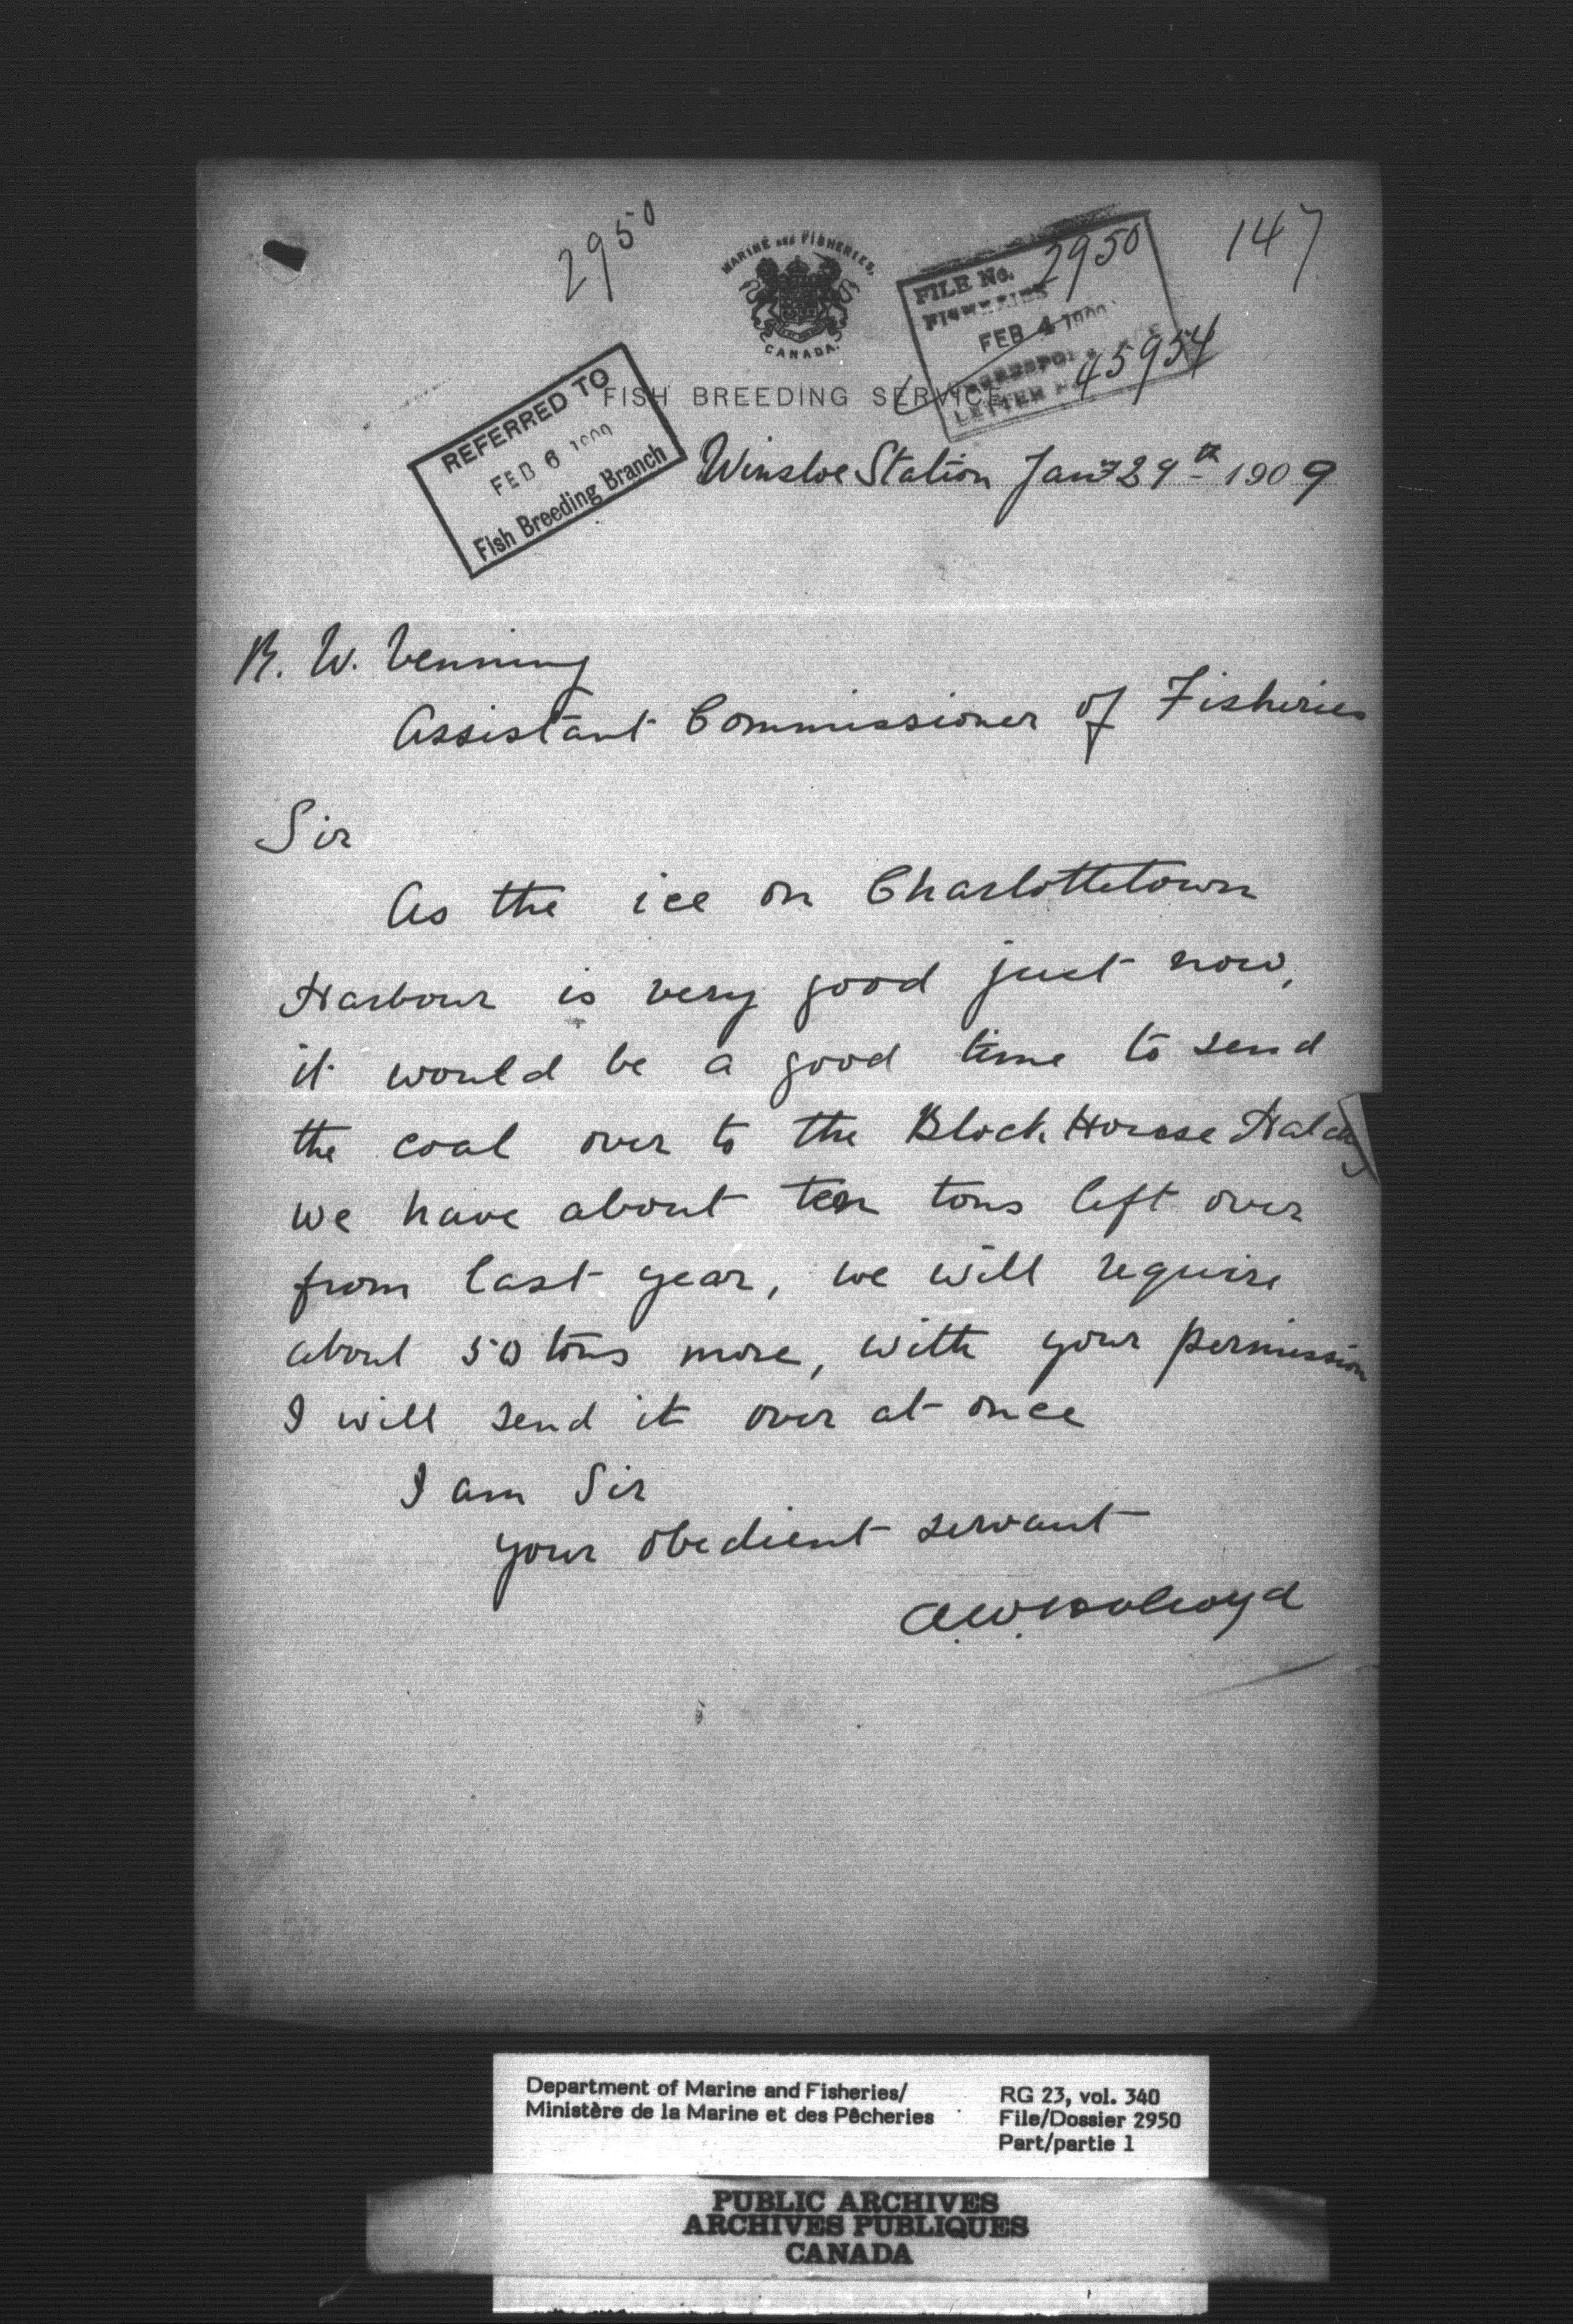 2950
147
MARINE and FISHERIES,
CANADA.
FILE No. 2950
FISHERIES
FEB 4 1909
LETTER No. 45954
FISH BREEDING SERVICE
REFERRED TO
FEB 6 1909
Fish Breeding Branch
Winsloe Station Jany 29th 1909
R. W. Venning
Assistant Commissioner of Fisheries
Sir
As the ice on Charlottetown
Harbour is very good just now,
it would be a good time to send
the coal over to the Block House Hatchy
we have about ten tons left over
from last year, we will require
about 50 tons more, with your permission
I will send it over at once
I am Sir
your obedient servant
A.W. Holroyd
Department of Marine and Fisheries/
Ministère de la Marine et des Pêcheries
RG 23, vol. 340
File/Dossier 2950
Part/partie 1
PUBLIC ARCHIVES
ARCHIVES PUBLIQUES
CANADA